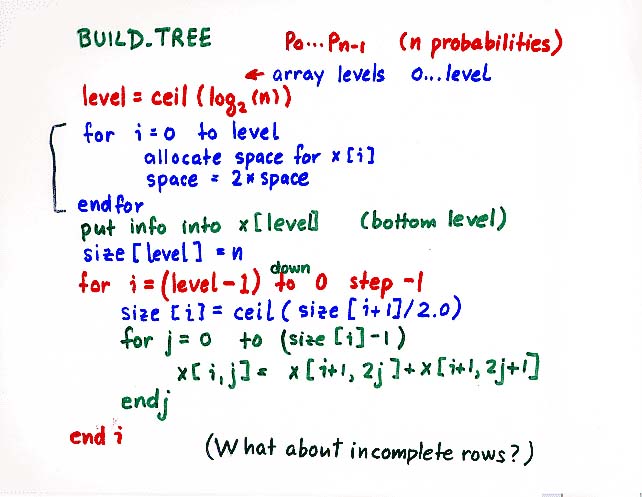 BUILD.TREE P0...Pn-1 (n probabilities)
← array levels 0...level
level = ceil (log2 (n))
for i=0 to level
allocate space for x[i]
space = 2*space
endfor
put info into x[level] (bottom level)
size [level] = n
for i=(level-1) down to 0 step -1
size [i] = ceil (size [i+1]/2.0)
for j=0 to (size [i]-1)
x[i,j] = x[i+1, 2j] + x[i+1, 2j+1]
end j
end i
(What about incomplete rows?)